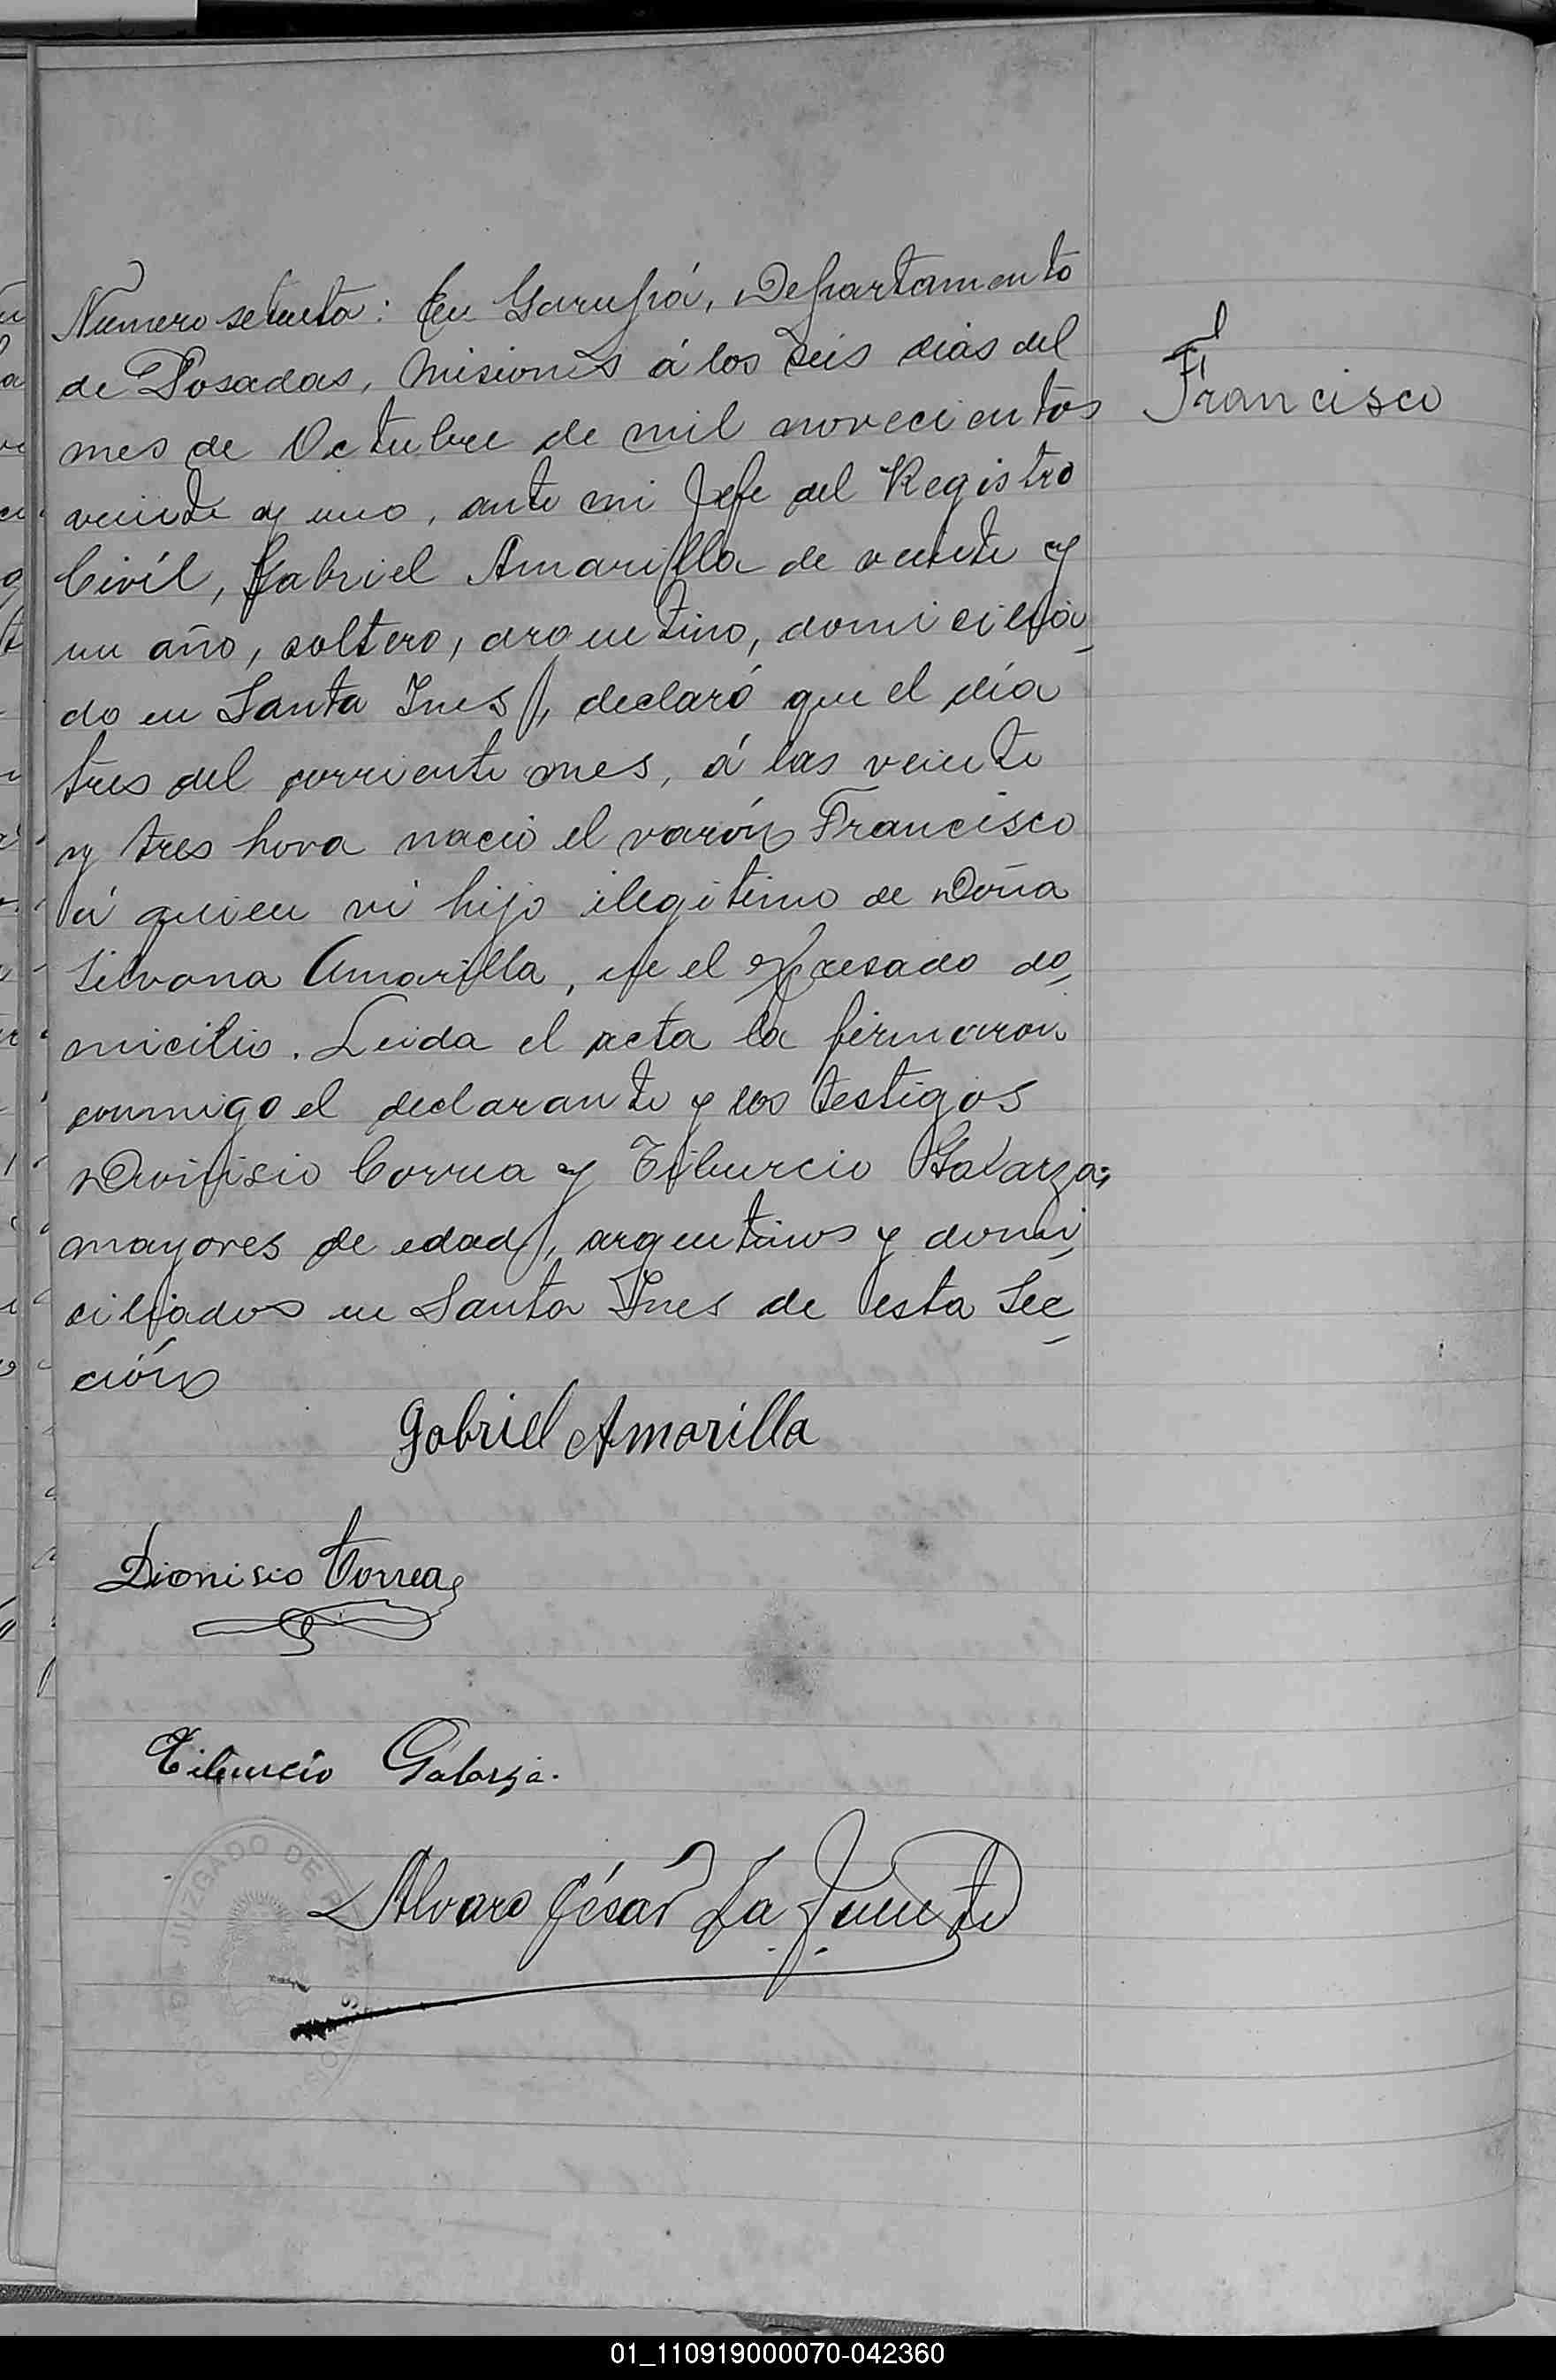 Numero setenta: En Garupá, Departamento
de Posadas, Misiones á los seis dias del
mes de Octubre de mil novecientos
veinte y uno, ante mi Jefe del Registro
Civíl, Gabriel Amarilla de veinte y
un año, soltero, argentino, domicilia-
do en Santa Ines, declaró que el día
tres del corriente mes, á las veinte
y tres hora nació el varón Francisco
á quien vi hijo ilegitimo de Doña
Silvana Amarilla, de el expresado do-
micilio. Leida el acta la firmaron
conmigo el declarante y los testigos
Dionisio Correa y Tiburcio Galarza;
mayores de edad, argentinos y domi-
ciliados en Santa Ines de esta Sec-
ción
Francisco
Gabriel Amarilla
Dionisio Correa
Tiburcio Galarza.
Alvaro César La Fuente
JUZGADO DE PAZ
01_110919000070-042360